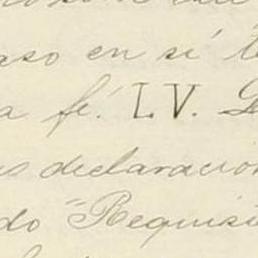 aso en sí t
a fé. LV. D
s declaracion
do "Requisi